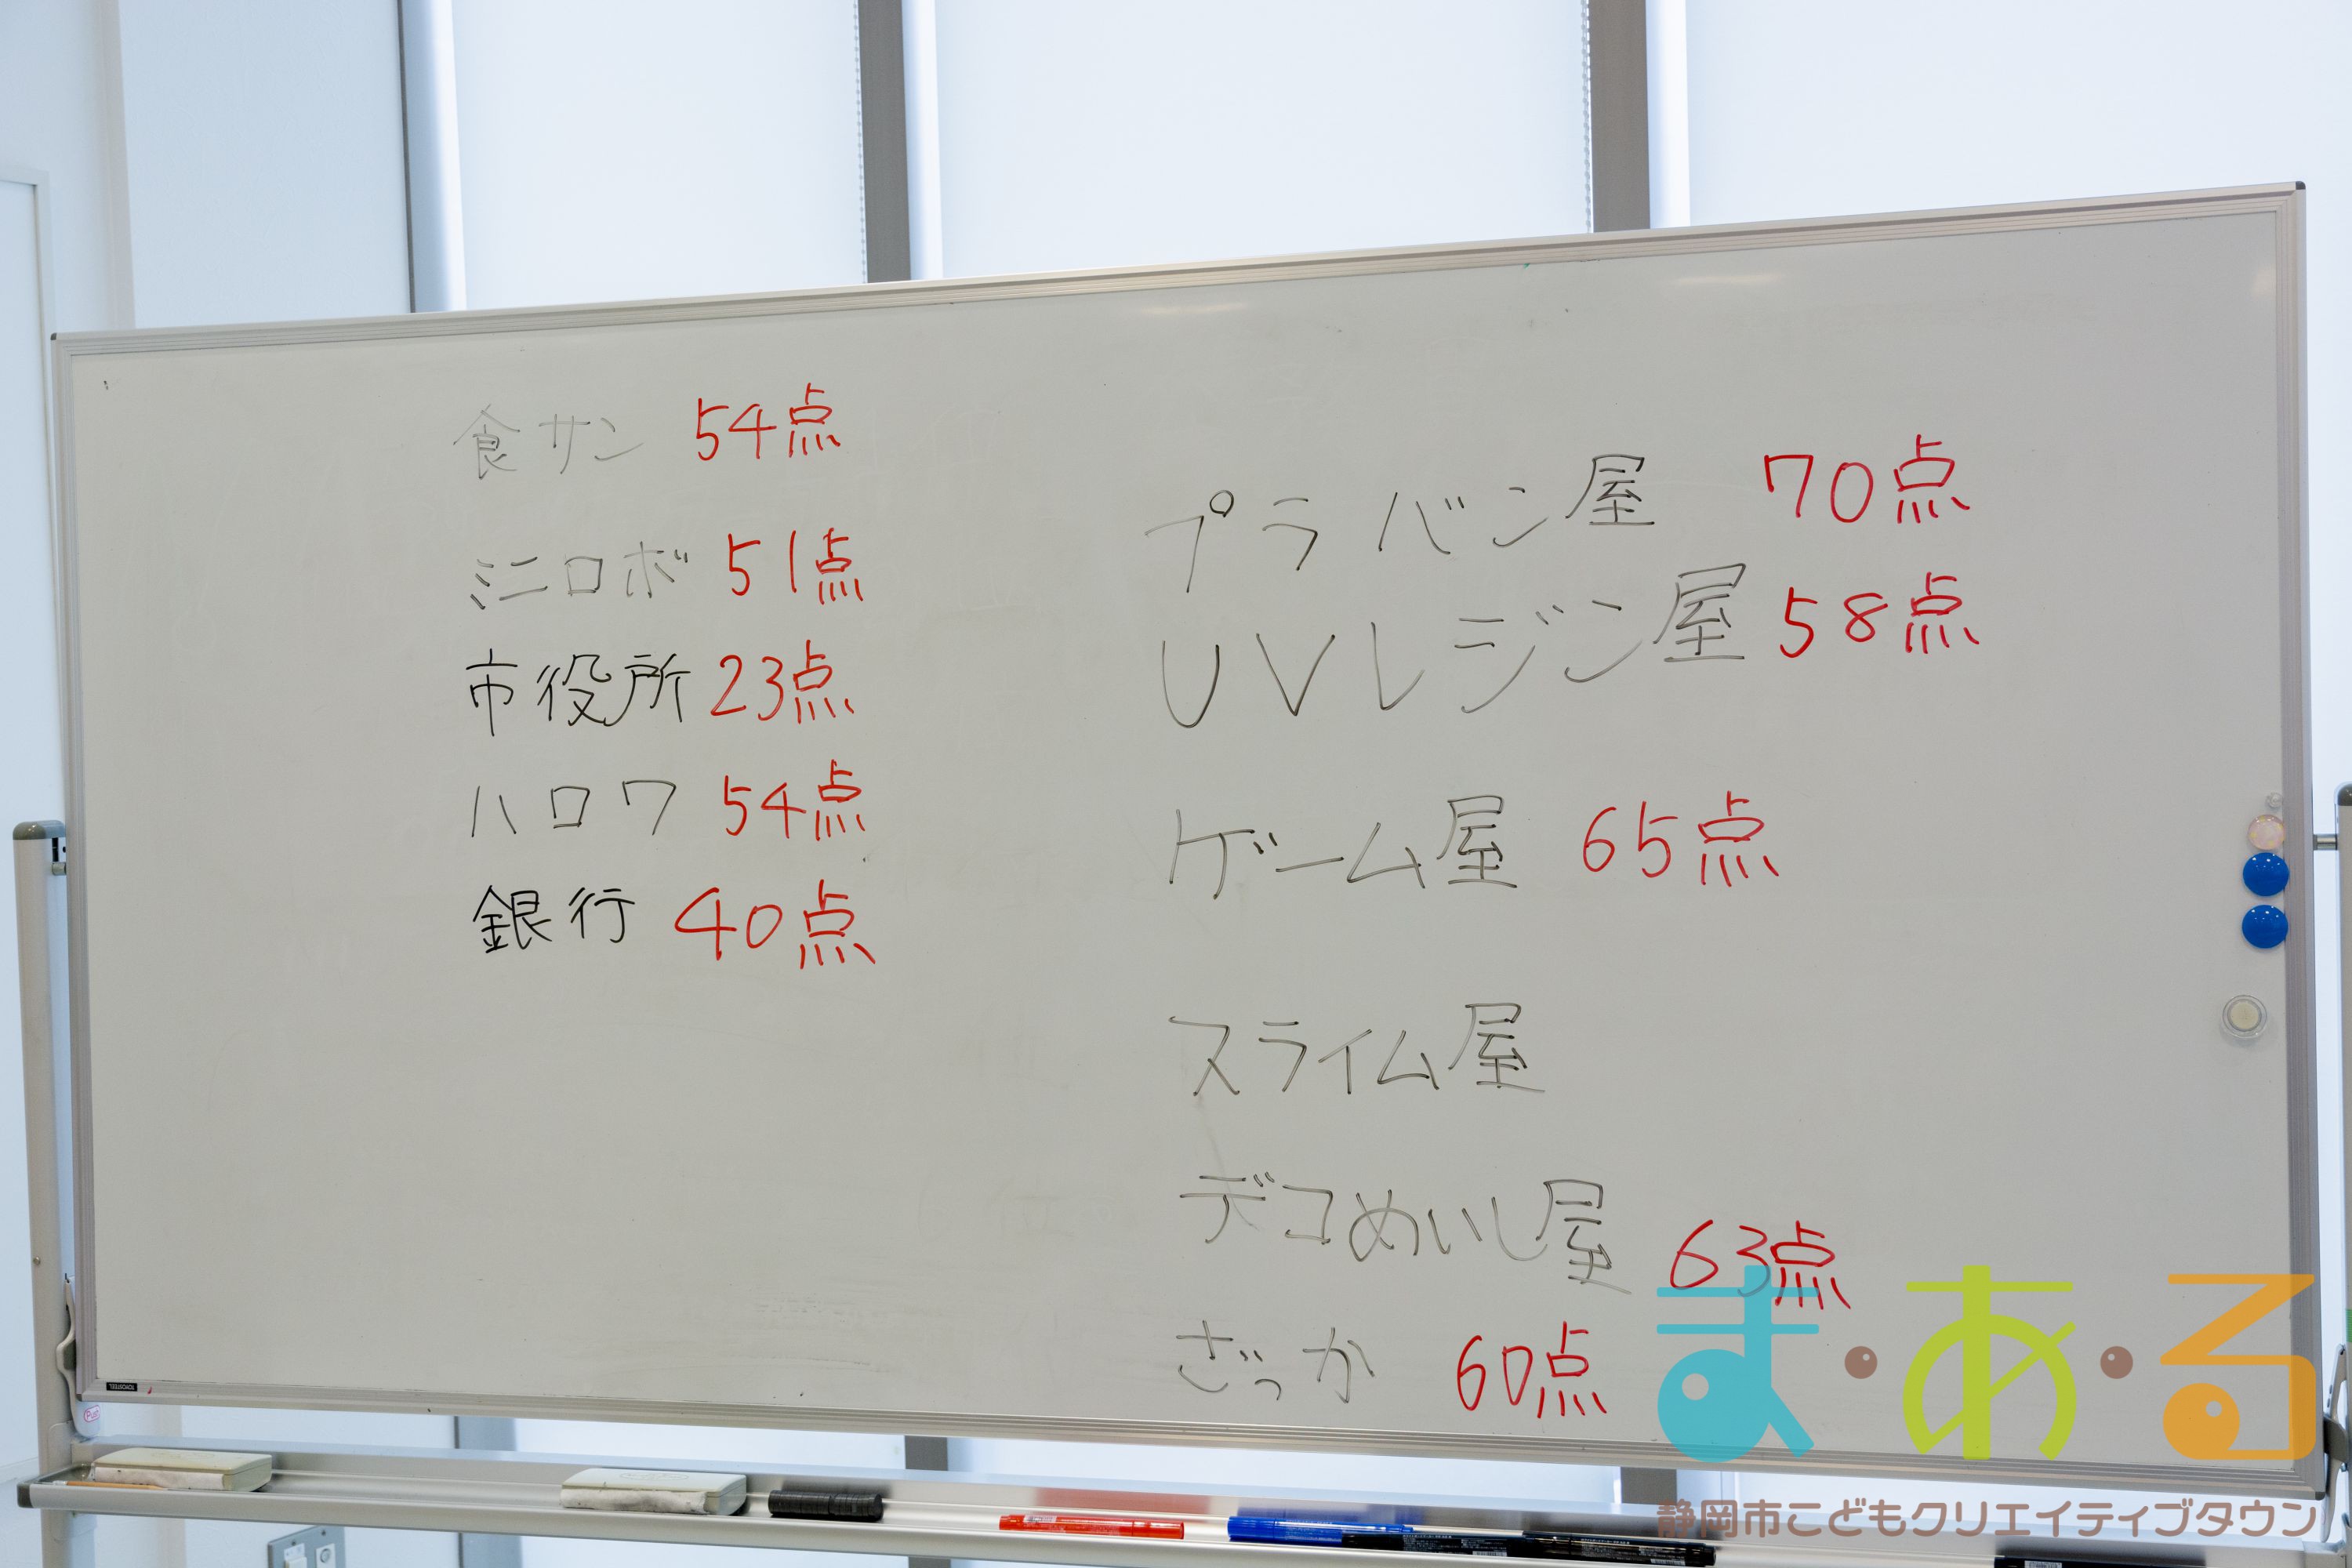 食サン 54点
ミニロボ 51点
市役所 23点
ハロワ 54点
銀行 40点
プラバン屋 70点
UVレジン屋 58点
ゲーム屋 65点
スライム屋
デコめいし屋 63点
ざっか 60点
TOYOSTEEL
Push
ま・あ・る
静岡市こどもクリエイティブタウン